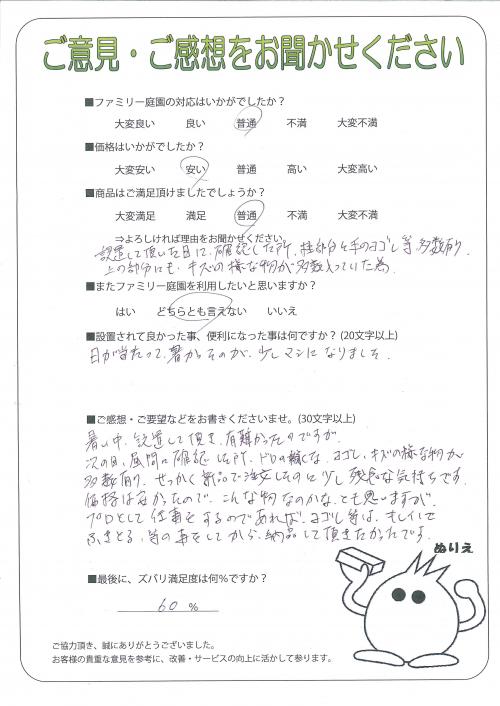 ご意見・ご感想をお聞かせください
■ファミリー庭園の対応はいかがでしたか？
大変良い　良い　普通　不満　大変不満
■価格はいかがでしたか？
大変安い　安い　普通　高い　大変高い
■商品はご満足頂けましたでしょうか？
大変満足　満足　普通　不満　大変不満
⇒よろしければ理由をお聞かせください。
設置して頂いた日に、確認した所、柱部分に手のヨゴレ等多数有り
上の部分にも、キズの様な物が多数入っていた為
■またファミリー庭園を利用したいと思いますか？
はい　どちらとも言えない　いいえ
■設置されて良かった事、便利になった事は何ですか？(20文字以上)
日が当たって、暑かったのが、少しマシになりました。
■ご感想・ご要望などをお書きくださいませ。(30文字以上)
暑い中、設置して頂き、有難かったのですが、
次の日、昼間に確認した所、ドロの様な、ヨゴレ、キズの様な物が
多数有り、せっかく新品で注文したのに少し残念な気持ちです。
価格は安かったので、こんな物なのかな、とも思いますが、
プロとして仕事をするのであれば、ヨゴレ等は、キレイに
ふきとる、等の事をしてから、納品して頂きたかったです。
ぬりえ
■最後に、ズバリ満足度は何％ですか？
60 %
ご協力頂き、誠にありがとうございました。
お客様の貴重な意見を参考に、改善・サービスの向上に活かして参ります。